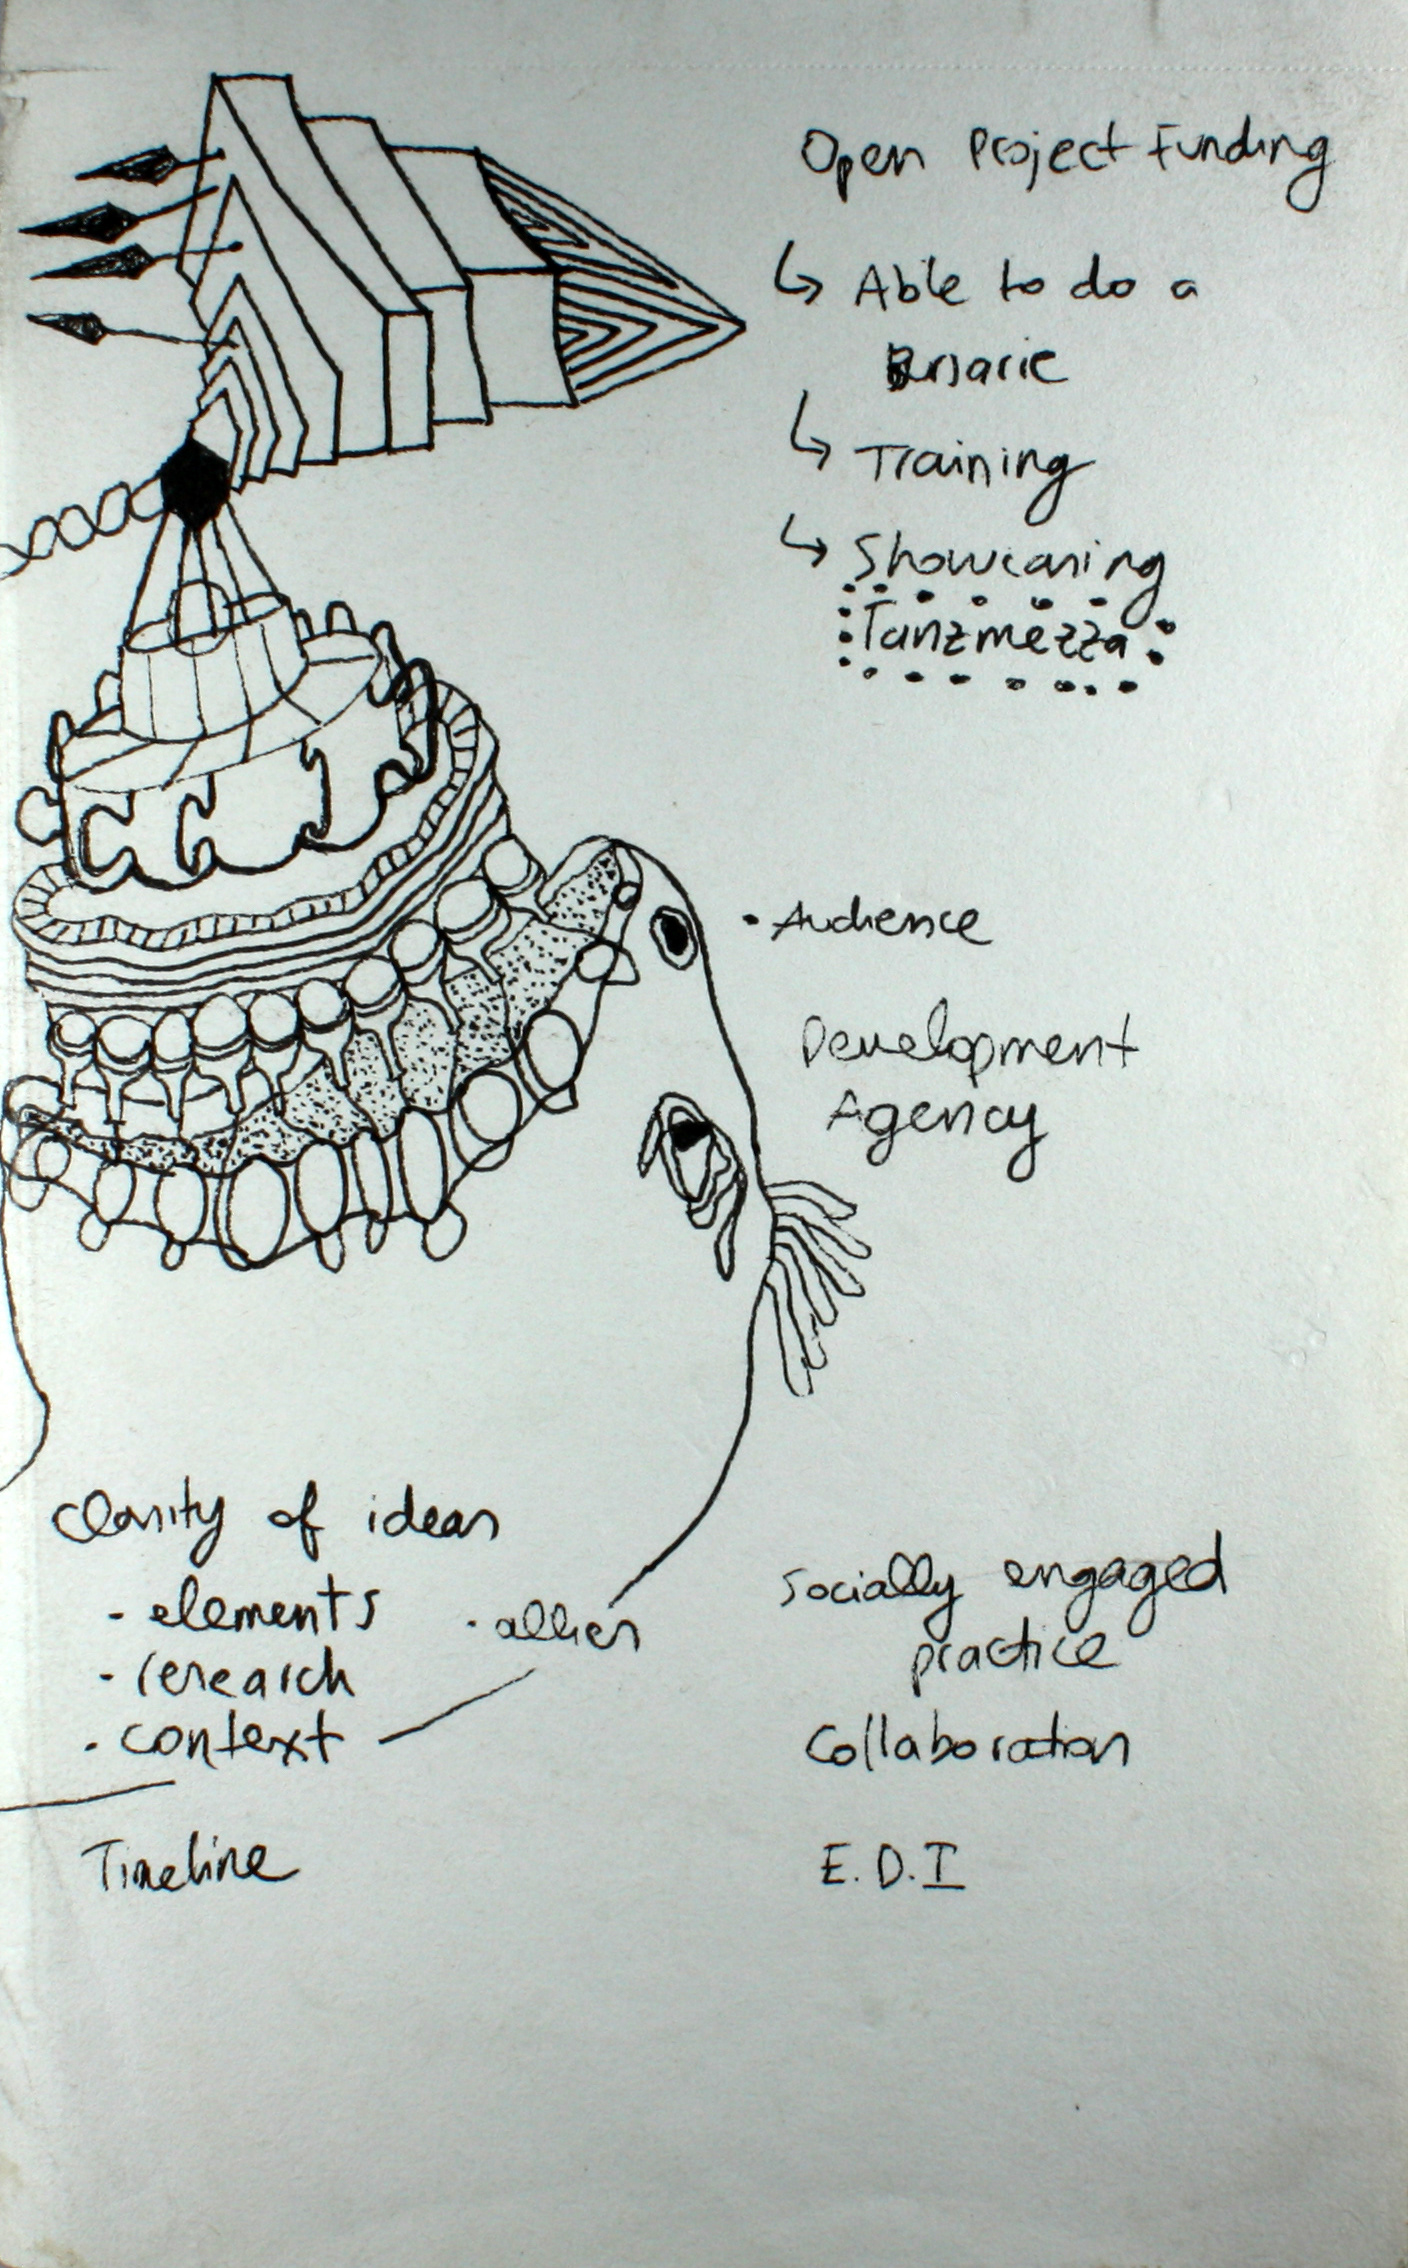 Open Project Funding
↳ Able to do a
Bursarie
↳ Training
↳ Showcasing
Tanzmezza
• Audience
Development
Agency
Clarity of ideas
- elements
• allies
- research
• context
Timeline
Socially engaged
practice
Collaboration
E.D.I